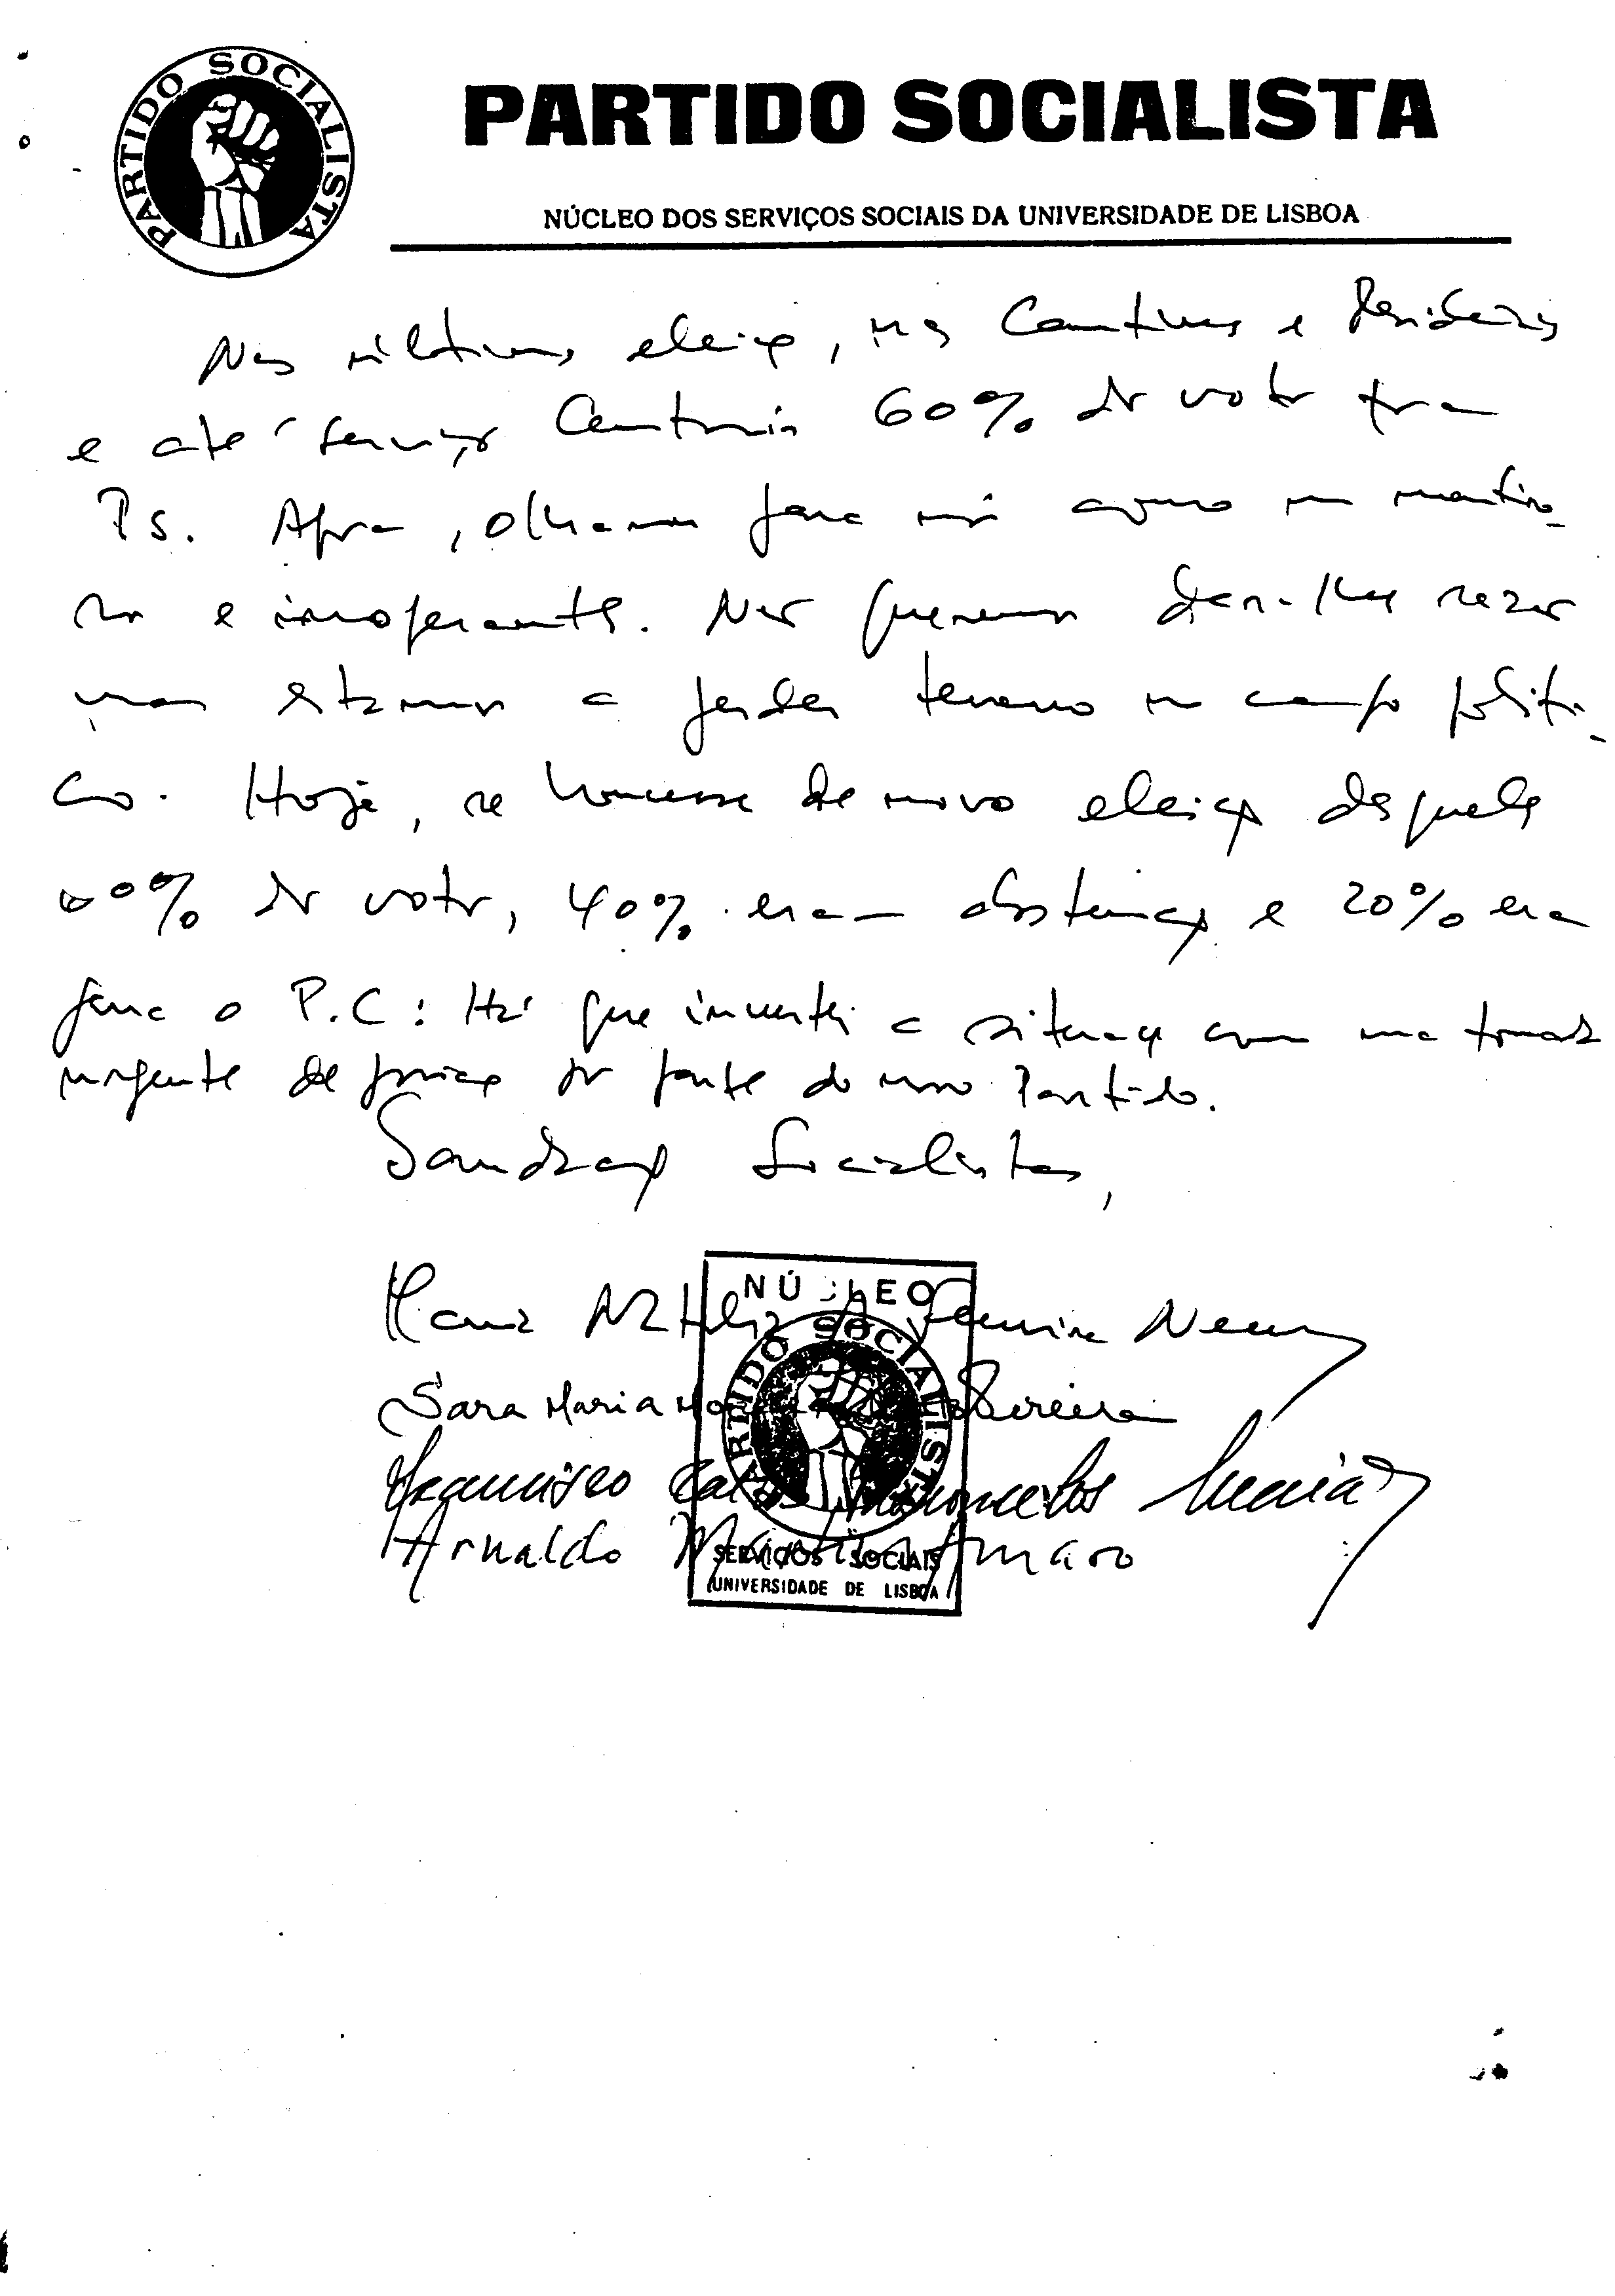 PARTIDO SOCIALISTA
PARTIDO SOCIALISTA
NÚCLEO DOS SERVIÇOS SOCIAIS DA UNIVERSIDADE DE LISBOA
Nas últimas eleições, nas Cantinas e Residências
e até serviços Centrais 60% dos votos foram
PS. Agora, olham para nós como uns mentiro-
sos e inoperantes. Não queremos dar-lhes razão
mas estamos a perder terreno no campo políti-
co. Hoje, se houvesse de novo eleições daqueles
60% de votos, 40% eram abstenções e 20% era
para o P.C: Há que inverter a situação com uma tomada
urgente de posição por parte do nosso Partido.
Saudações Socialistas,
NÚCLEO
Maria Neves
Sara Maria Pereira
PARTIDO SOCIALISTA
Francisco Vasconcelos
Arnaldo Amaro
SERVIÇOS SOCIAIS
UNIVERSIDADE DE LISBOA